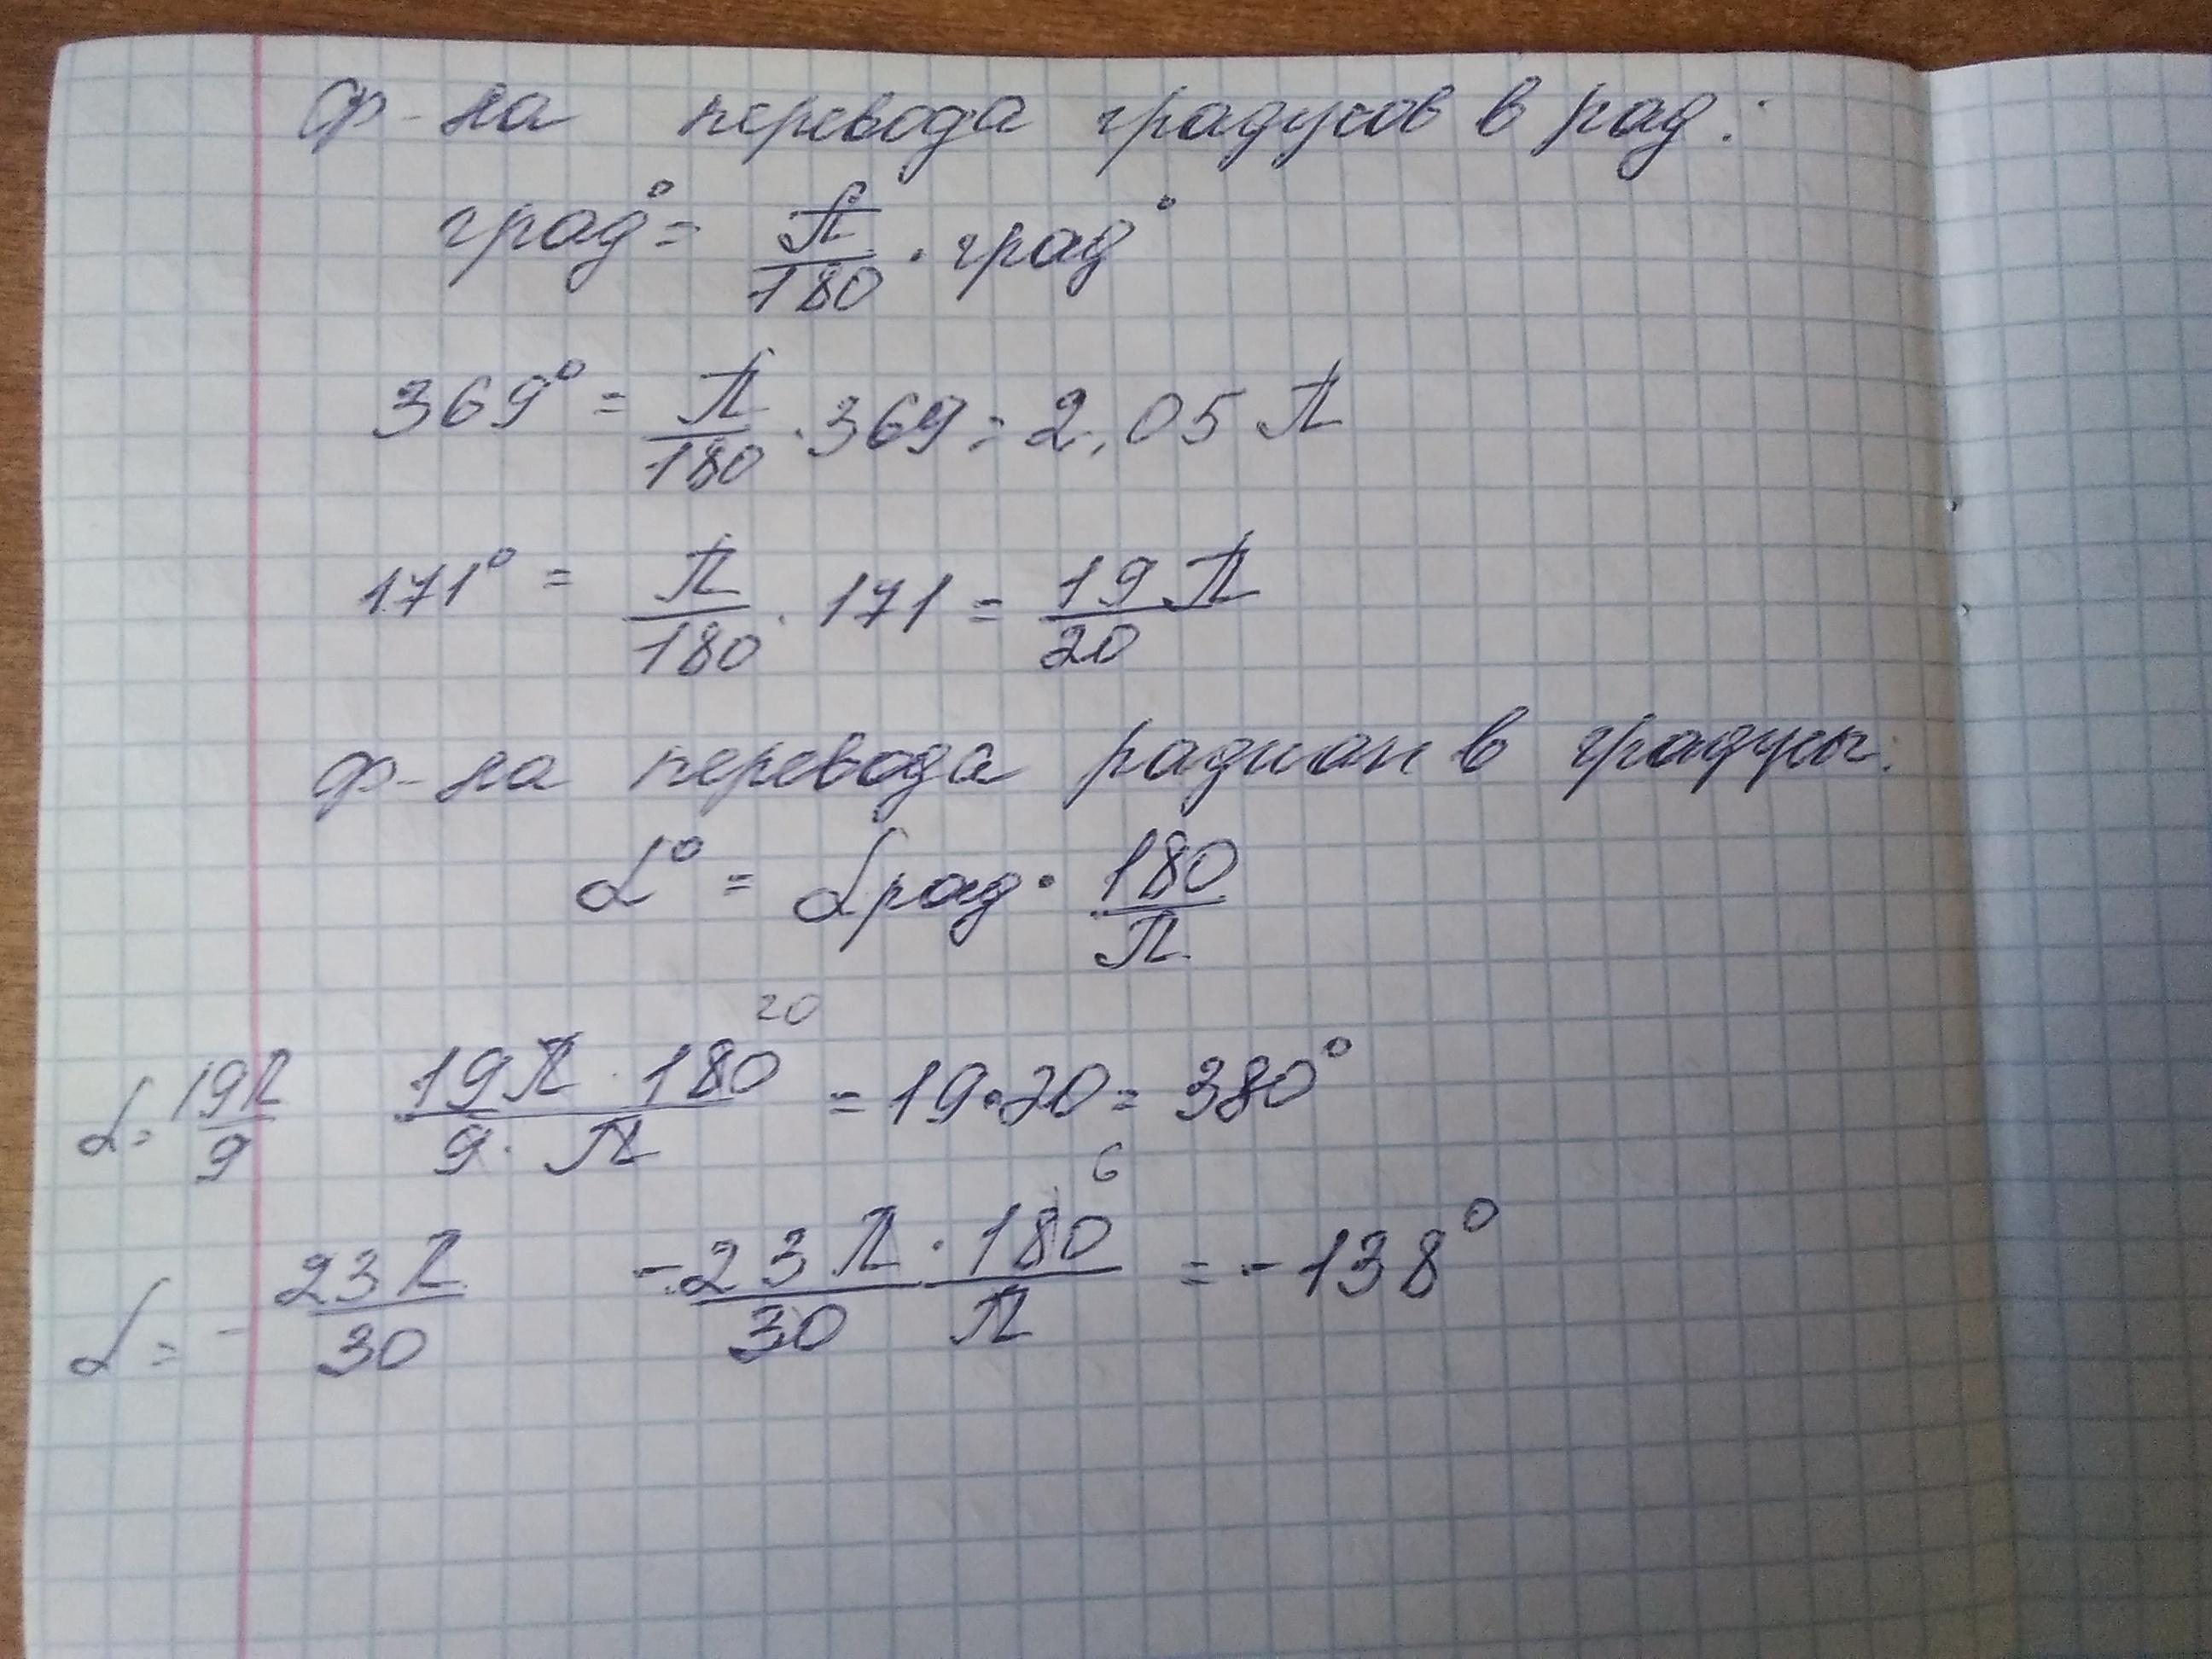 ф-ла перевода градусов в рад:
град° = π/180 · град°
369° = π/180 · 369 = 2,05 π
171° = π/180 · 171 = 19π/20
ф-ла перевода радиан в градусы:
α° = α рад · 180/π
α = 19π/9 19π · 180 20/9 · π = 19 · 20 = 380°
α = - 23π/30 - 23π · 180 6/30 π = - 138°